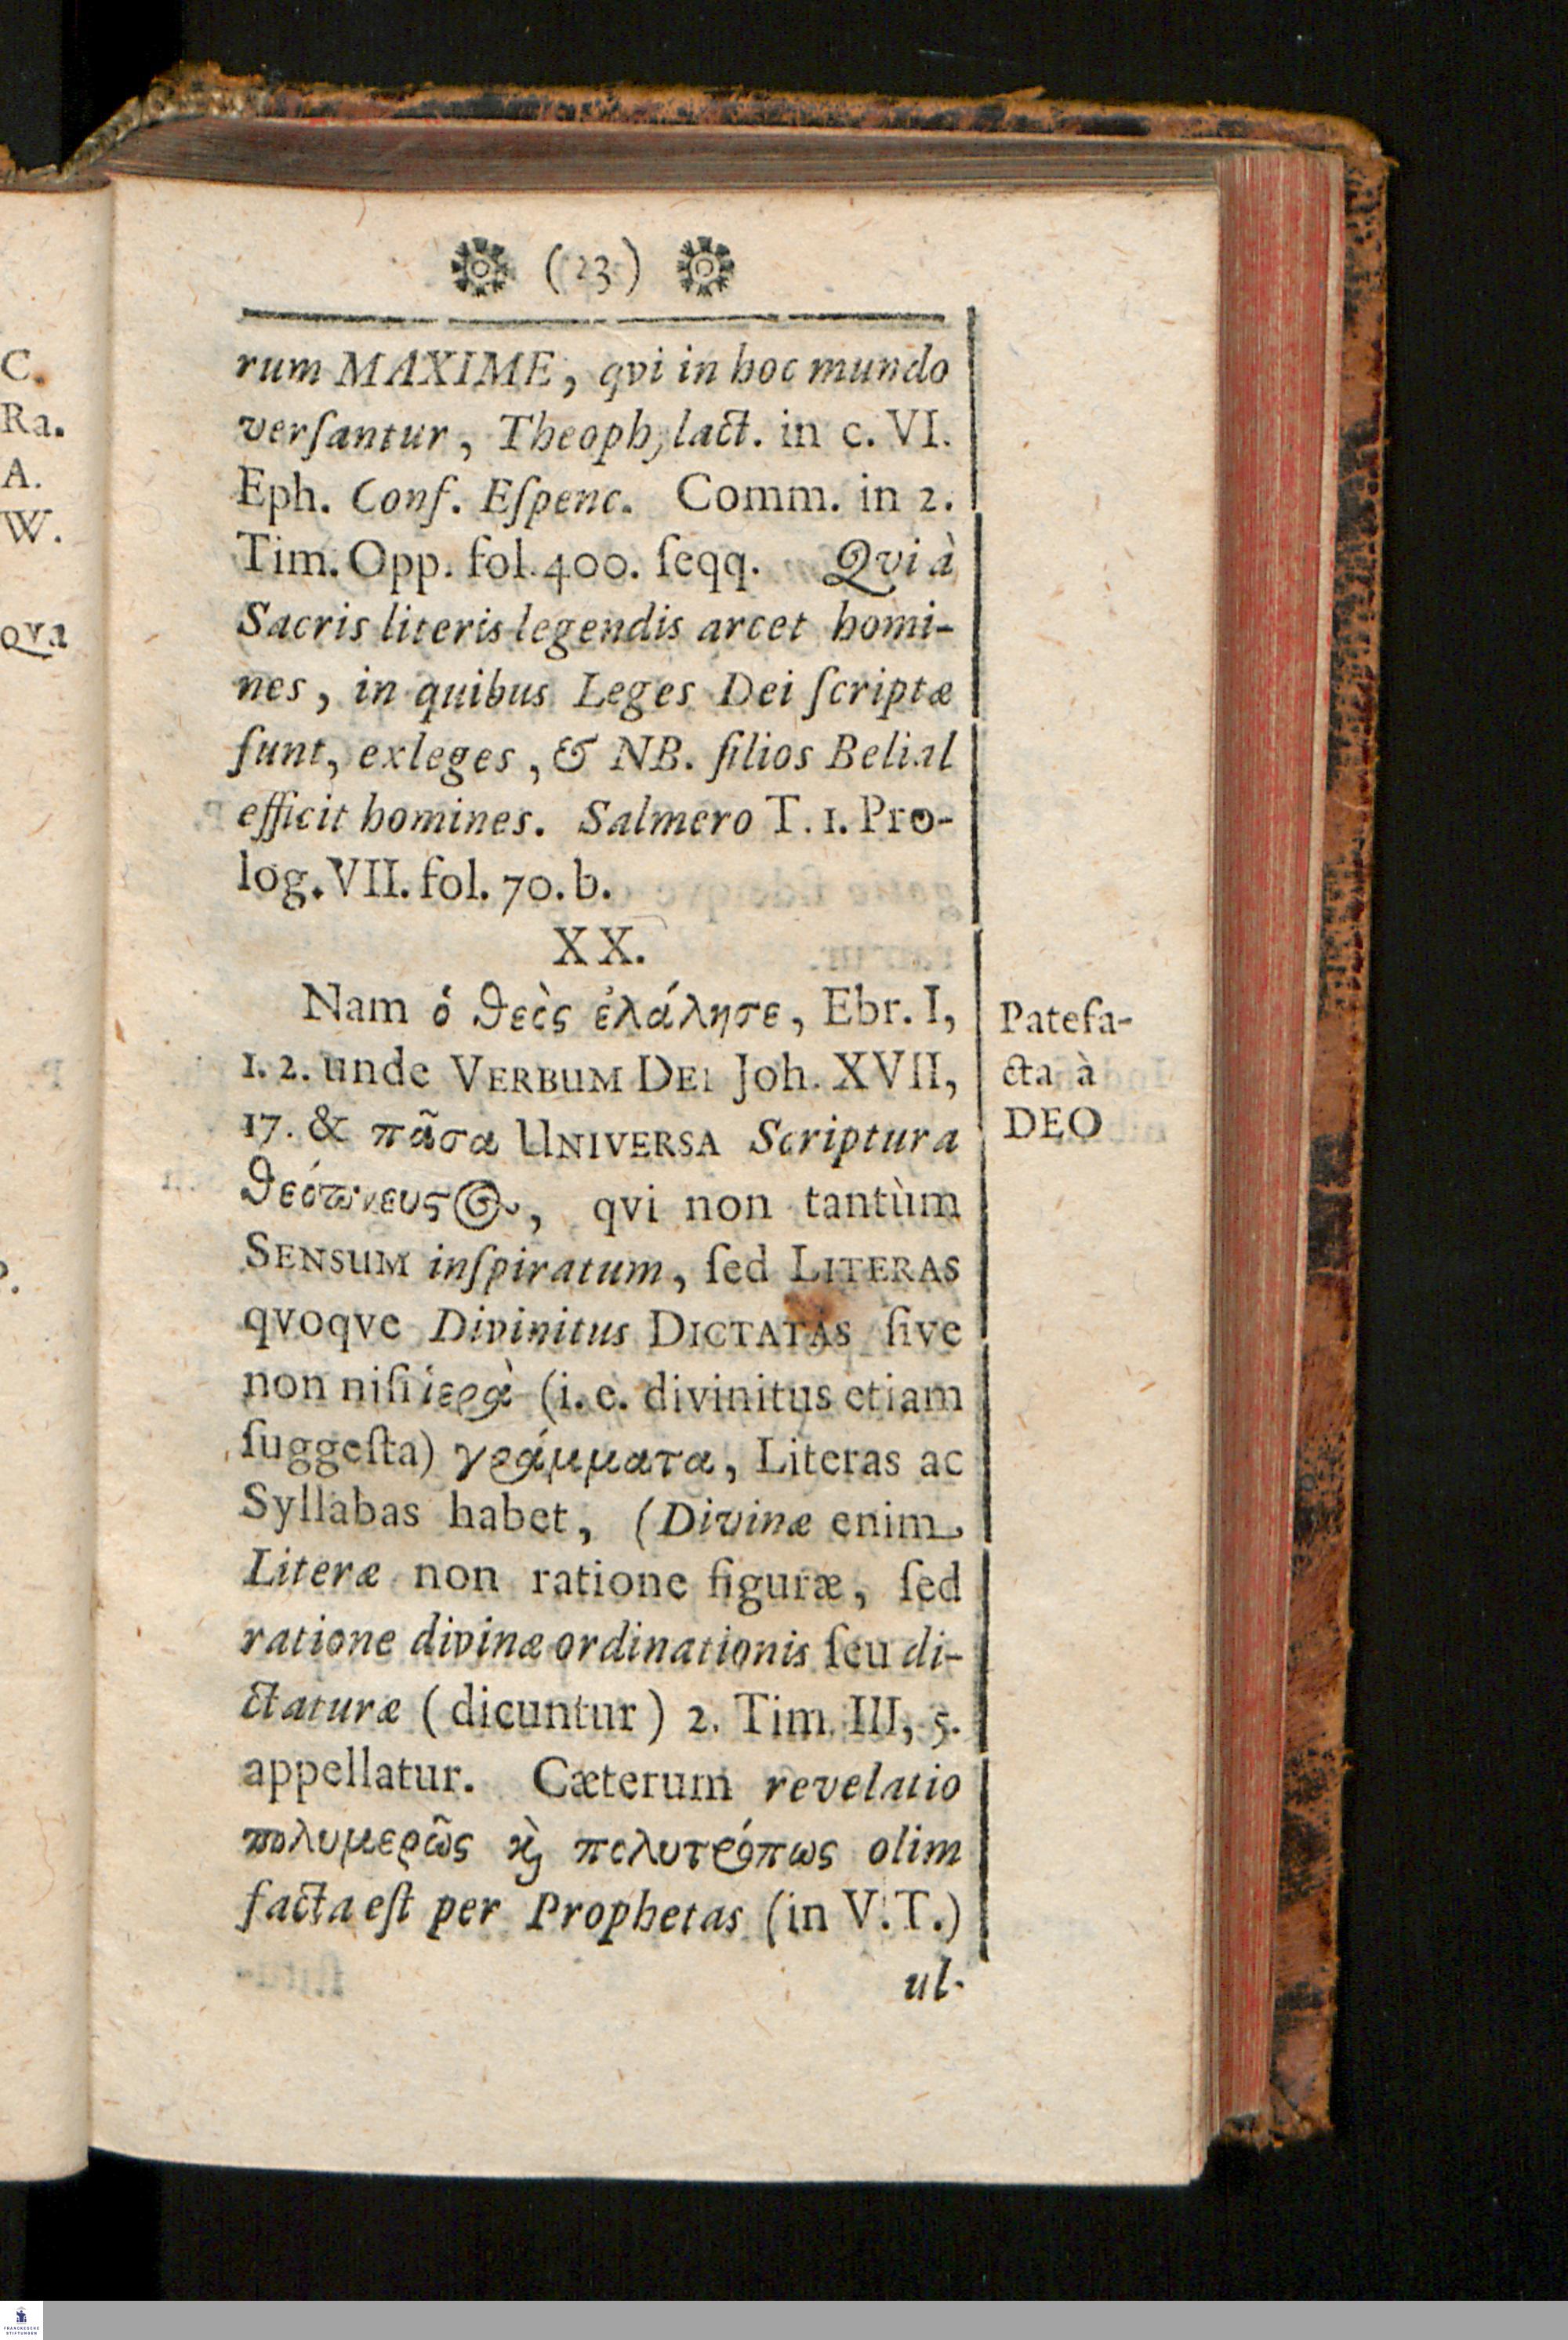 (23)
rum MAXIME, qvi in hoc mundo
verſantur, Theophylact. in c. VI.
Eph. Conf. Eſpenc. Comm. in 2.
Tim. Opp. fol. 400. ſeqq. Qvi à
Sacris literis legendis arcet homi-
nes, in quibus Leges Dei ſcriptæ
ſunt, exleges, & NB. filios Belial
efficit homines. Salmero T. 1. Pro-
log. VII. fol. 70. b.
XX.
Nam ὁ θεὸς ἐλάλησε, Ebr. I,
1. 2. unde VERBUM DEI Joh. XVII,
17. & πᾶσα UNIVERSA Scriptura
θεόπνευςος, qvi non tantùm
SENSUM inſpiratum, ſed LITERAS
qvoqve Divinitus DICTATAS ſive
non niſi ἱερὰ (i. e. divinitus etiam
ſuggeſta) γράμματα, Literas ac
Syllabas habet, (Divinæ enim
Literæ non ratione figuræ, ſed
ratione divinæ ordinationis ſeu di-
ctaturæ (dicuntur) 2. Tim. III, 5.
appellatur. Cæterum revelatio
πολυμερῶς ϗ̀ πολυτρόπως olim
facta eſt per Prophetas (in V. T.)
ul-
Patefa-
cta à
DEO
C.
Ra.
A.
W.
qva
FRANCKESCHE
STIFTUNGEN